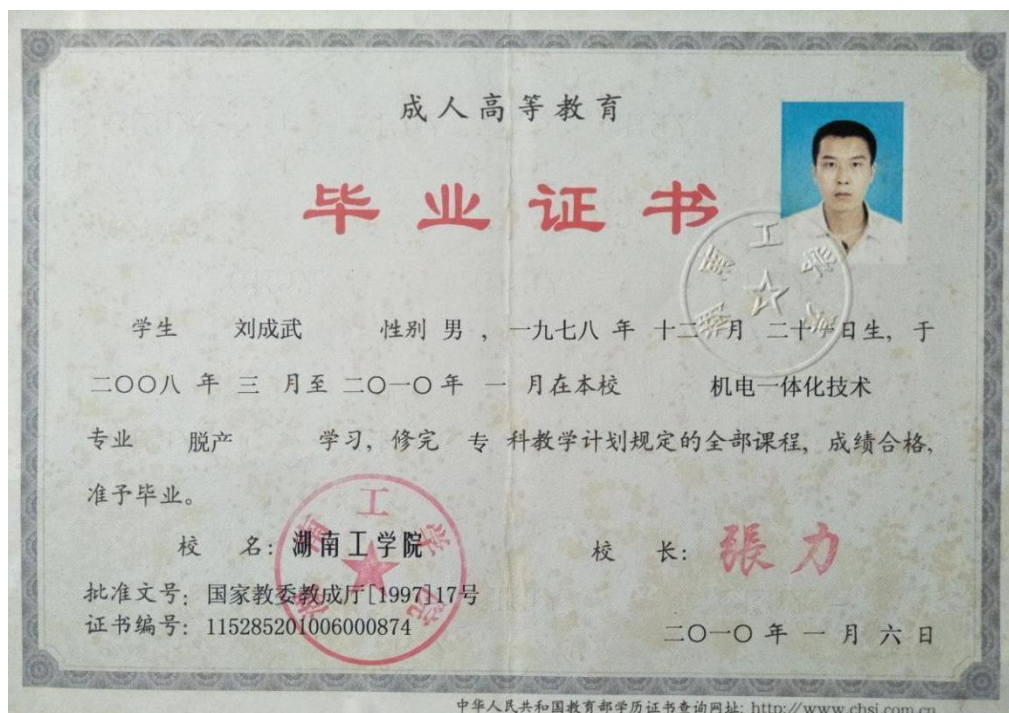 成人高等教育
毕业证书
学生 刘成武 性别 男 , 一九七八 年 十二 月 二十 日生, 于
二〇〇八 年 三 月至 二〇一〇 年 一 月在本校 机电一体化技术
专业 脱产 学习, 修完 专 科教学计划规定的全部课程, 成绩合格,
准予毕业。
校 名: 湖南工学院
校 长: 張力
批准文号: 国家教委教成厅[1997]17号
证书编号: 115285201006000874
二〇一〇 年 一 月 六 日
湖南工学院
湖南工学院
中华人民共和国教育部学历证书查询网址: http://www.chsi.com.cn